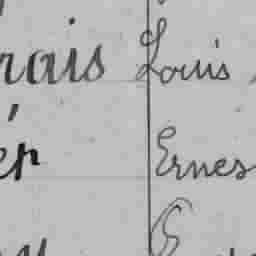 rais Louis
ér Ernes